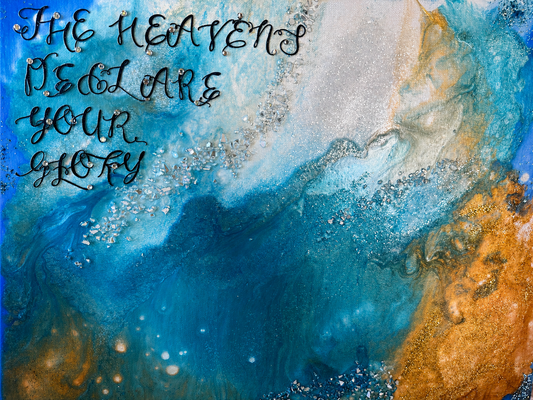 THE HEAVENS
DECLARE
YOUR
GLORY